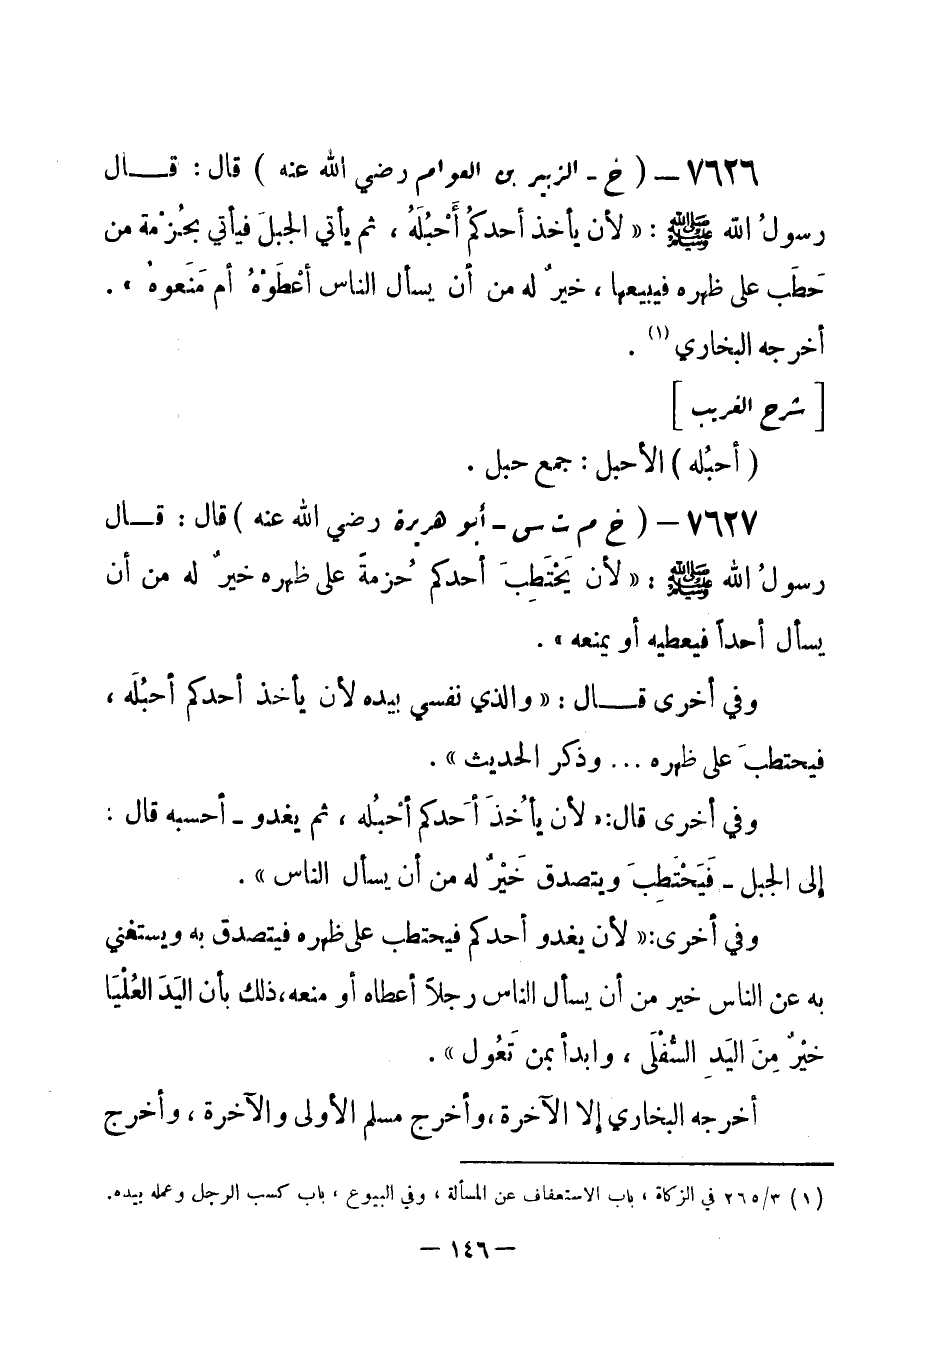 ٧٦٢٦ – ( خ - الزبير بن العوام رضي الله عنه ) قال : قـــال
رسولُ الله ﷺ : « لأن يأخذ أحدكمُ أَحْبُلَهُ ، ثم يأتي الجبلَ فيأتي بحُزْمة من
حَطَب على ظهره فيبيعها ، خيرٌ له من أن يسأل الناس أعْطَوْهُ أم مَنَعوهُ » .
أخرجه البخاري (١) .
[ شرح الغريب ]
( أحبُله ) الأحبل : جمع حبل .
٧٦٢٧ – ( خ م ت س - أبو هريرة رضي الله عنه ) قال : قـــال
رسولُ الله ﷺ : « لأن يَحْتَطِبَ أحدكم حُزمةً على ظهره خيرٌ له من أن
يسأل أحداً فيعطيه أو يمنعه » .
وفي أخرى قـــال : « والذي نفسي بيده لأن يأخذ أحدكم أحبُلَه ،
فيحتطبَ على ظهره ... وذكر الحديث » .
وفي أخرى قال: « لأن يأخُذَ أَحدكم أحْبُله ، ثم يغدو - أحسبه قال :
إلى الجبل - فَيَحْتَطِبَ ويتصدق خَيْرٌ له من أن يسأل الناس » .
وفي أخرى: « لأن يغدو أحدكم فيحتطب على ظهره فيتصدق به ويستغني
به عن الناس خير من أن يسأل الناس رجلاً أعطاه أو منعه، ذلك بأن اليَدَ العُلْيَا
خيْرٌ مِنَ اليَدِ السُّفْلَى ، وابدأ بمن تَعُول » .
أخرجه البخاري إلا الآخرة ، وأخرج مسلم الأولى والآخرة ، وأخرج
(١) ٢٦٥/٣ في الزكاة ، باب الاستعفاف عن المسألة ، وفي البيوع ، باب كسب الرجل وعمله بيده.
– ١٤٦ –